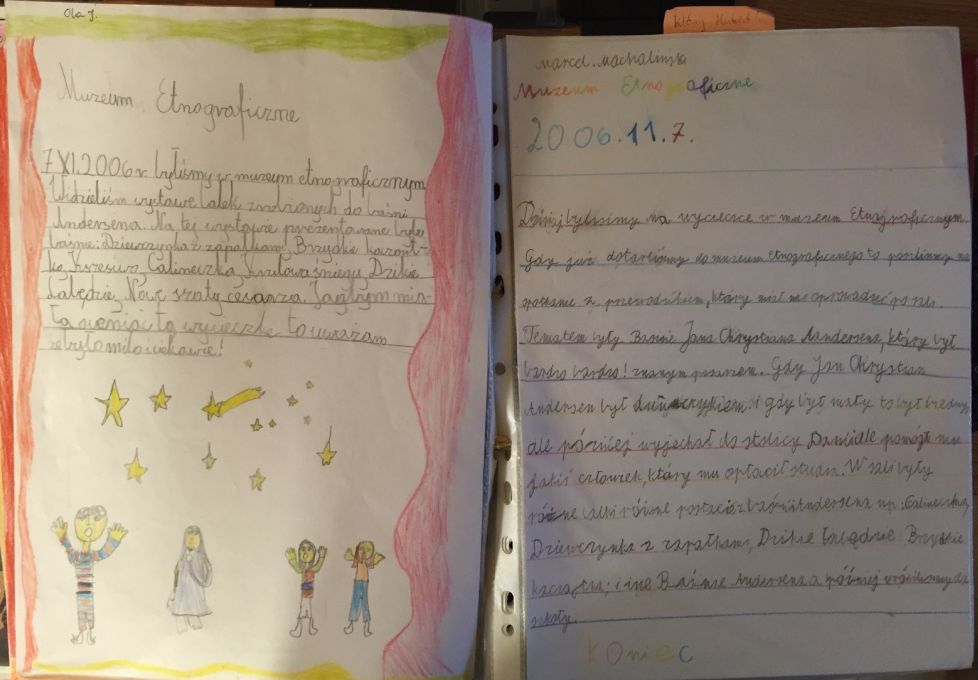 Ola J.
Muzeum Etnograficzne
7 XI.2006 r. byliśmy w muzeum etnograficznym
Widzieliśm wystawę lalek zrobionych do baśni
Andersena. Na tej wystawie prezentowane były
baśnie: Dziewczynka z zapałkami, Brzydkie kacząt-
ko, Krzesiwo, Calineczka, Królowa śniegu, Dzikie
Łabędzie, Nowe szaty cesarza. Jagbym mia-
ła oceniać tą wycieczkę to uważam
że było miło i ciekawie!
Który Hubert
Marcel. Machaliński
Muzeum Etnograficzne
2006.11.7.
Dzisiaj bylissimy na wycieczce w muzeum Etnografycznym.
Gdy już dotarliśmy do muzeum etnograficznego to poszliśmy na
spotkanie z przewodnikiem, który miał nas oprowadzić po sali.
Tematem były Baśnie Jana Chrystiana Aandersena, który był
bardzo bardzo! znanym pisarzem. Gdy Jan Chrystian
Andersen był i gdy był mały to był biedny,
ale później wyjechał do stolicy Danii pomógł mu
jakiś człowiek, który mu opłacił studia. W sali były
różne lalki różne postacie z baśni Andersena np: Calineczka,
Dziewczynka z zapałkami, Dzikie łabędzie Brzydkie
kaczątka; i ine Baśnie Andersena a później wróciliśmy do
szkoły.
Koniec